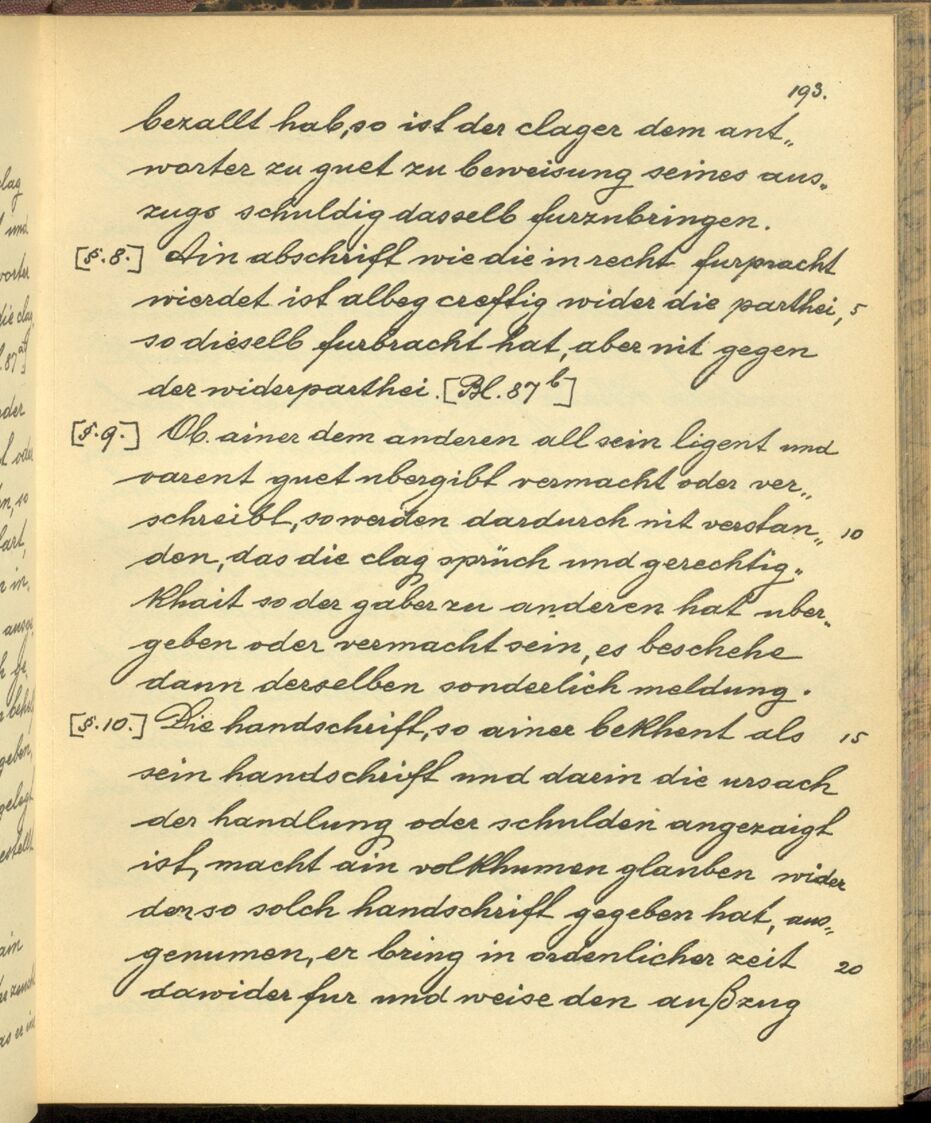 193.
bezallt hab, so ist der clager dem ant„
worter zu guet zu beweisung seines aus„
zugs schuldig dasselb furzubringen.
[§. 8.] Ain abschrift wie die in recht furpracht
wierdet ist albeg creftig wider die parthei, 5
so dieselb furbracht hat, aber nit gegen
der widerparthei. [Bl. 87ᵇ]
[§. 9.] Ob ainer dem anderen all sein ligent und
varent guet ubergibt vermacht oder ver„
schreibt, so werden dardurch nit verstan„ 10
den, das die clag sprüch und gerechtig„
khait so der gaber zu anderen hat uber„
geben oder vermacht sein, es beschehe
dann derselben sonderlich meldung.
[§. 10.] Die handschrift, so ainer bekhent als 15
sein handschrift und darin die ursach
der handlung oder schulden angezaigt
ist, macht ain volkhumen glauben wider
den so solch handschrift gegeben hat, aus„
genumen, er bring in ordenlicher zeit 20
dawider fur und weise den außzug